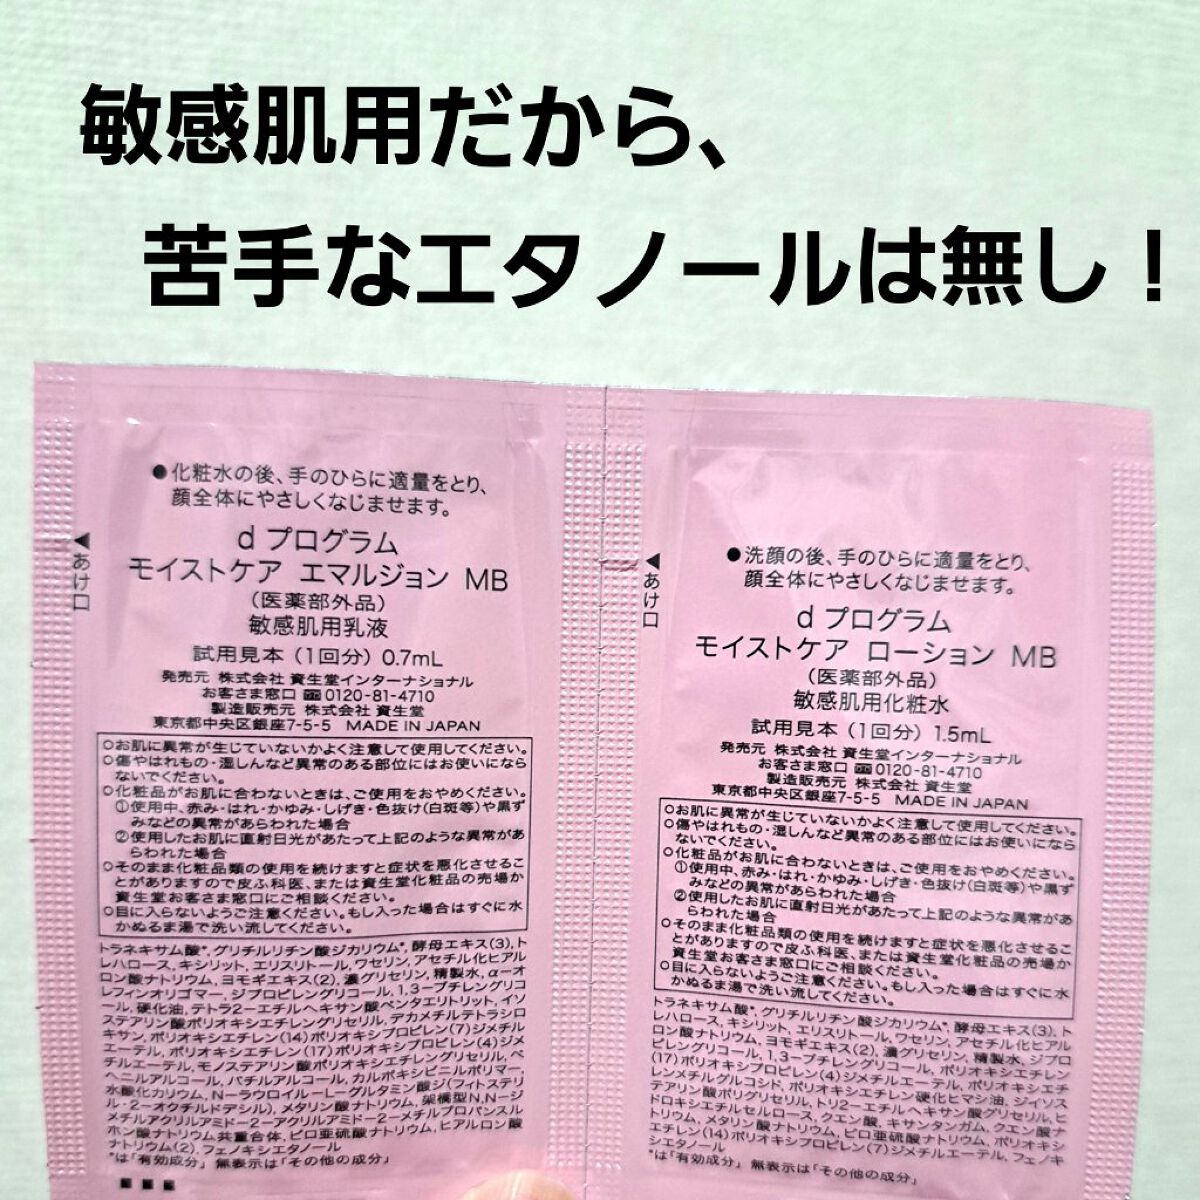 敏感肌用だから、
苦手なエタノールは無し！
●化粧水の後、手のひらに適量をとり、
顔全体にやさしくなじませます。
◀あけ口
d プログラム
モイストケア エマルジョン MB
（医薬部外品）
敏感肌用乳液
試用見本（1回分）0.7mL
発売元 株式会社 資生堂インターナショナル
お客さま窓口 0120-81-4710
製造販売元 株式会社 資生堂
東京都中央区銀座7-5-5 MADE IN JAPAN
○お肌に異常が生じていないかよく注意して使用してください。
○傷やはれもの・湿しんなど異常のある部位にはお使いになら
ないでください。
○化粧品がお肌に合わないときは、ご使用をおやめください。
①使用中、赤み・はれ・かゆみ・しげき・色抜け(白斑等)や黒ず
みなどの異常があらわれた場合
②使用したお肌に直射日光があたって上記のような異常があ
らわれた場合
○そのまま化粧品類の使用を続けますと症状を悪化させるこ
とがありますので皮ふ科医、または資生堂化粧品の売場か
資生堂お客さま窓口にご相談ください。
○目に入らないようご注意ください。もし入った場合はすぐに水
かぬるま湯で洗い流してください。
トラネキサム酸*, グリチルリチン酸ジカリウム*, 酵母エキス(3), ト
レハロース, キシリット, エリスリトール, ワセリン, アセチル化ヒアル
ロン酸ナトリウム, ヨモギエキス(2), 濃グリセリン, 精製水, α-オ
レフィンオリゴマー, ジプロピレングリコール, 1,3-ブチレングリコ
ール, 硬化油, テトラ2-エチルヘキサン酸ペンタエリトリット, イソ
ステアリン酸ポリオキシエチレングリセリル, デカメチルテトラシロ
キサン, ポリオキシエチレン(14)ポリオキシプロピレン(7)ジメチル
エーテル, ポリオキシエチレン(17)ポリオキシプロピレン(4)ジメ
チルエーテル, モノステアリン酸ポリオキシエチレングリセリル, ベ
ヘニルアルコール, バチルアルコール, カルボキシビニルポリマー,
水酸化カリウム, N-ラウロイル-L-グルタミン酸ジ(フィトステリ
ル・2-オクチルドデシル), メタリン酸ナトリウム, 架橋型N,N-ジ
メチルアクリルアミド-2-アクリルアミド-2-メチルプロパンスル
ホン酸ナトリウム共重合体, ピロ亜硫酸ナトリウム, ヒアルロン酸
ナトリウム(2), フェノキシエタノール
*は「有効成分」 無表示は「その他の成分」
●洗顔の後、手のひらに適量をとり、
顔全体にやさしくなじませます。
◀あけ口
d プログラム
モイストケア ローション MB
（医薬部外品）
敏感肌用化粧水
試用見本（1回分）1.5mL
発売元 株式会社 資生堂インターナショナル
お客さま窓口 0120-81-4710
製造販売元 株式会社 資生堂
東京都中央区銀座7-5-5 MADE IN JAPAN
○お肌に異常が生じていないかよく注意して使用してください。
○傷やはれもの・湿しんなど異常のある部位にはお使いになら
ないでください。
○化粧品がお肌に合わないときは、ご使用をおやめください。
①使用中、赤み・はれ・かゆみ・しげき・色抜け(白斑等)や黒ず
みなどの異常があらわれた場合
②使用したお肌に直射日光があたって上記のような異常があ
らわれた場合
○そのまま化粧品類の使用を続けますと症状を悪化させるこ
とがありますので皮ふ科医、または資生堂化粧品の売場か
資生堂お客さま窓口にご相談ください。
○目に入らないようご注意ください。もし入った場合はすぐに水
かぬるま湯で洗い流してください。
トラネキサム酸*, グリチルリチン酸ジカリウム*, 酵母エキス(3), ト
レハロース, キシリット, エリスリトール, ワセリン, アセチル化ヒアル
ロン酸ナトリウム, ヨモギエキス(2), 濃グリセリン, 精製水, ジプロ
ピレングリコール, 1,3-ブチレングリコール, ポリオキシエチレン
(17)ポリオキシプロピレン(4)ジメチルエーテル, ポリオキシエチ
レンメチルグルコシド, ポリオキシエチレン硬化ヒマシ油, ジイソス
テアリン酸ポリグリセリル, トリ2-エチルヘキサン酸グリセリル, ヒ
ドロキシエチルセルロース, クエン酸, キサンタンガム, クエン酸ナ
トリウム, メタリン酸ナトリウム, ピロ亜硫酸ナトリウム, ポリオキシ
エチレン(14)ポリオキシプロピレン(7)ジメチルエーテル, フェノキ
シエタノール
*は「有効成分」 無表示は「その他の成分」